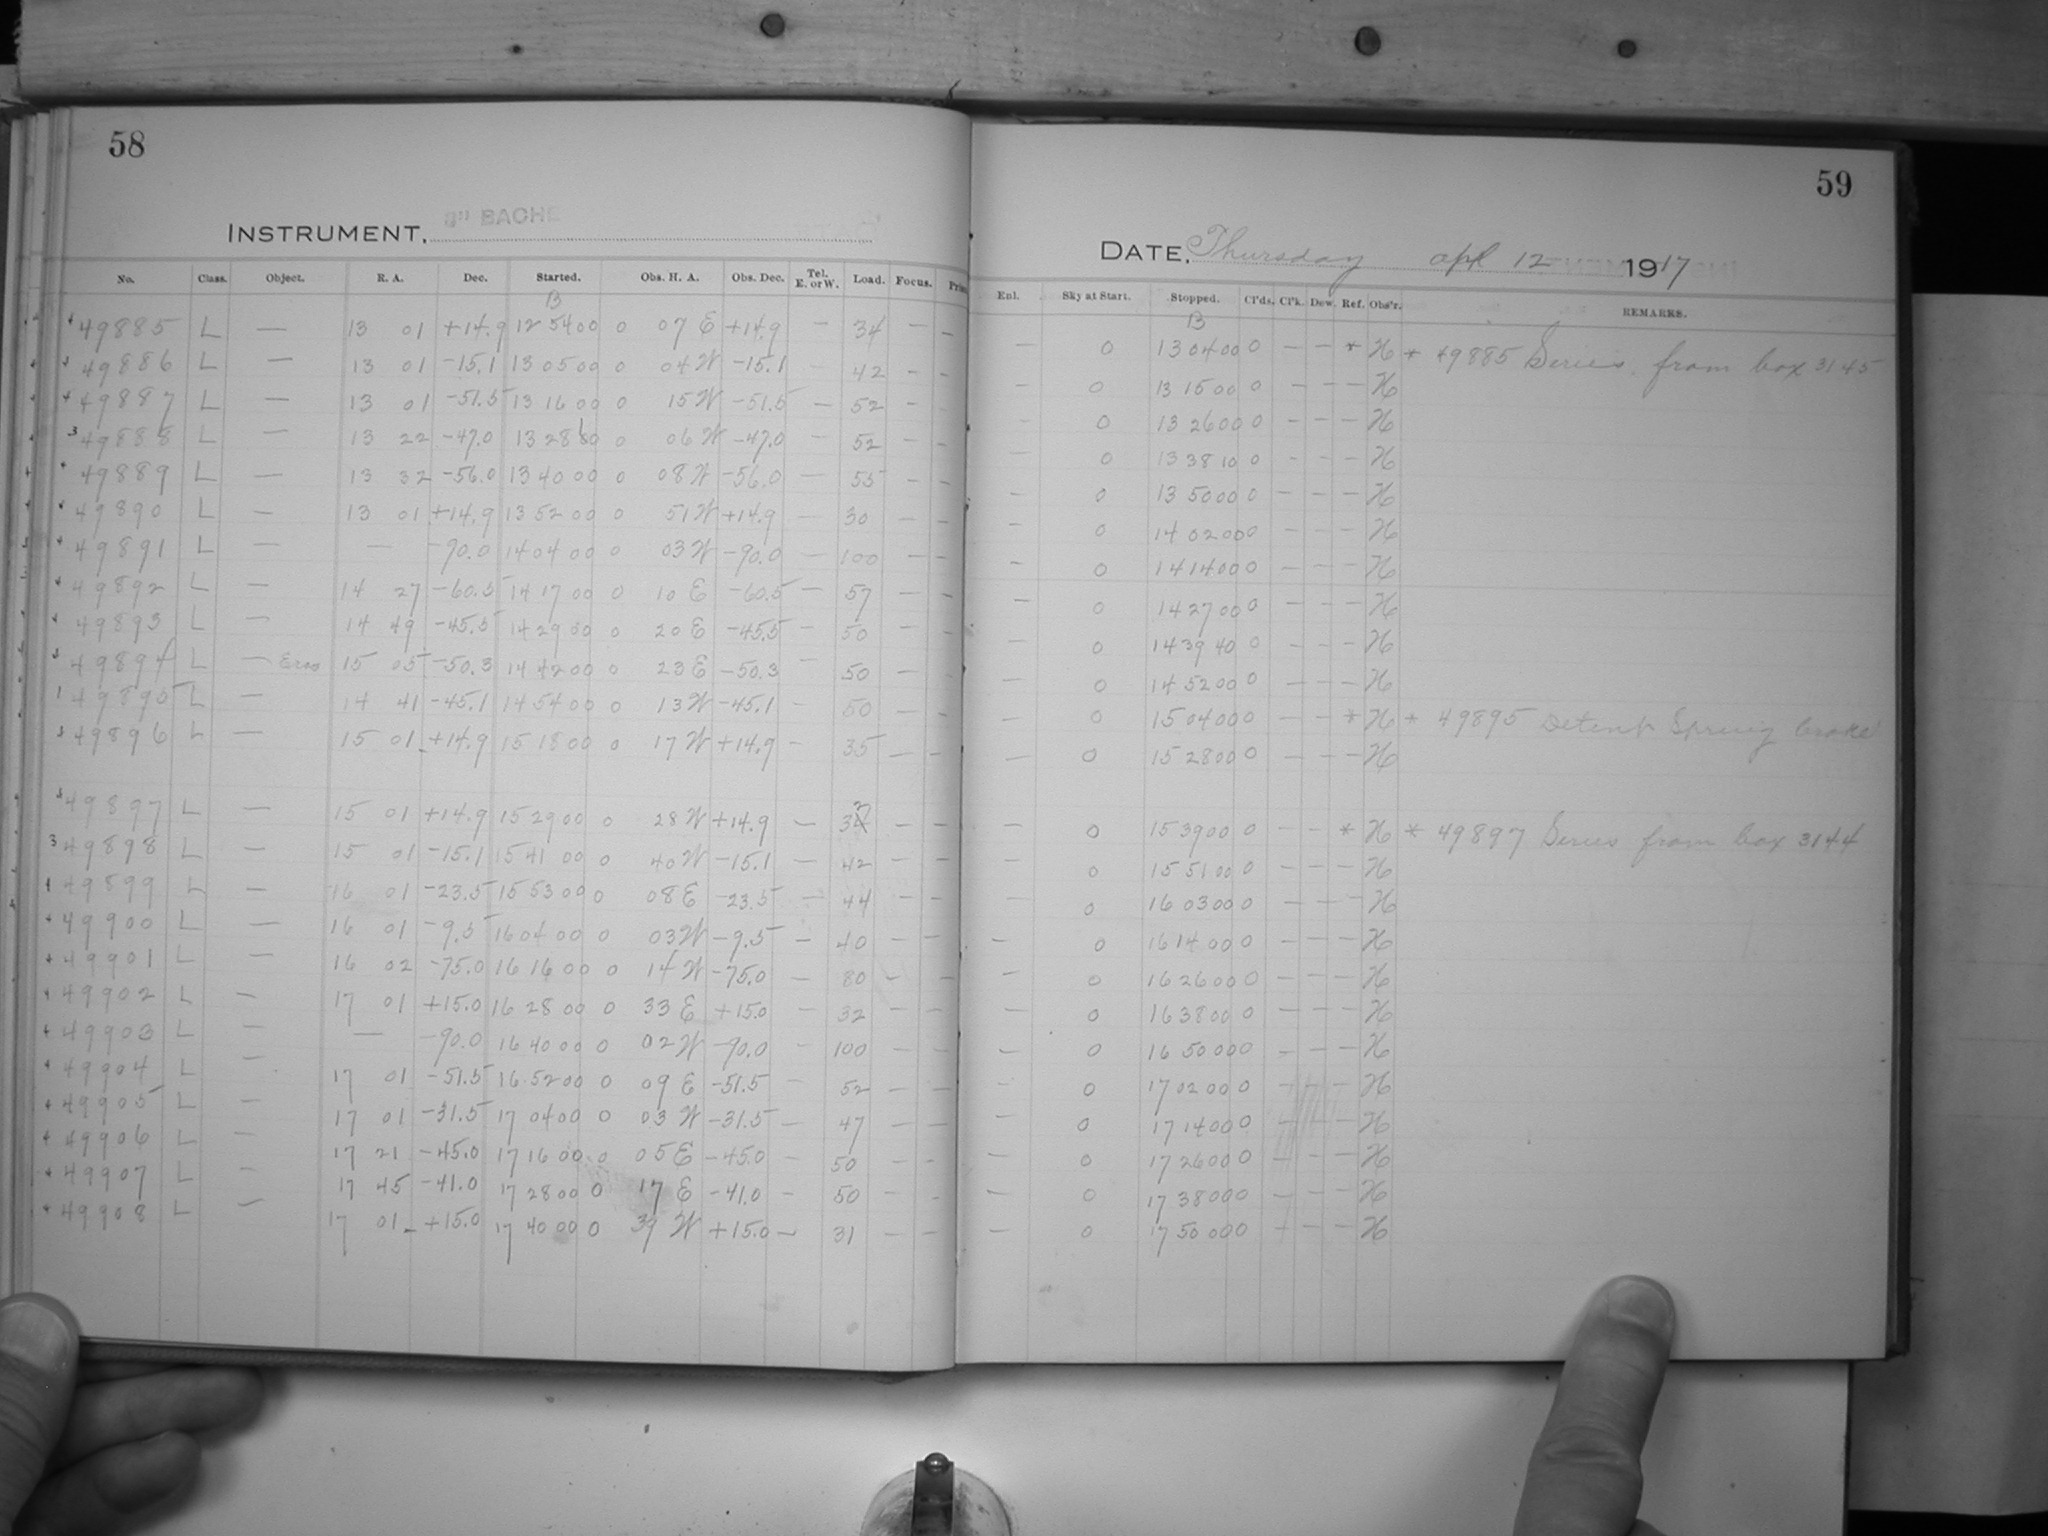 58
INSTRUMENT, 8" BACHE
No. Class. Object. R. A. Dec. Started. Obs. H. A. Obs. Dec. Tel. E. or W. Load. Focus.
B
49885 L — 13 01 +14.9 12 54 00 0 07 E +14.9 — 34 — —
49886 L — 13 01 -15.1 13 05 00 0 04 W -15.1 42 — —
49887 L — 13 01 -51.5 13 16 00 0 15 W -51.5 — 52 — —
49888 L — 13 22 -47.0 13 28 00 0 06 W -47.0 — 52 — —
49889 L — 13 32 -56.0 13 40 00 0 08 W -56.0 — 55 — —
49890 L — 13 01 +14.9 13 52 00 0 51 W +14.9 — 30 — —
49891 L — — -90.0 14 04 00 0 03 W -90.0 — 100 — —
49892 L — 14 27 -60.5 14 17 00 0 10 E -60.5 — 57 — —
49893 L — 14 49 -45.5 14 29 00 0 20 E -45.5 — 50 — —
49894 L — Eros 15 05 -50.3 14 42 00 0 23 E -50.3 — 50 — —
49895 L — 14 41 -45.1 14 54 00 0 13 W -45.1 — 50 — —
49896 L — 15 01 +14.9 15 18 00 0 17 W +14.9 — 35 — —
49897 L — 15 01 +14.9 15 29 00 0 28 W +14.9 — — —
49898 L — 15 01 -15.1 15 41 00 0 40 W -15.1 — 42 — —
49899 L — 16 01 -23.5 15 53 00 0 08 E -23.5 — 44 — —
49900 L — 16 01 -9.5 16 04 00 0 03 W -9.5 — 40 — —
49901 L — 16 02 -75.0 16 16 00 0 14 W -75.0 — 80 — —
49902 L — 17 01 +15.0 16 28 00 0 33 E +15.0 — 32 — —
49903 L — — -90.0 16 40 00 0 02 W -90.0 — 100 — —
49904 L — 17 01 -51.5 16 52 00 0 09 E -51.5 — 52 — —
49905 L — 17 01 -31.5 17 04 00 0 03 W -31.5 — 47 — —
49906 L — 17 21 -45.0 17 16 00 0 05 E -45.0 — 50 — —
49907 L — 17 45 -41.0 17 28 00 0 17 E -41.0 — 50 — —
49908 L — 17 01 +15.0 17 40 00 0 39 W +15.0 — 31 — —
59
DATE, Thursday Apl 12 1917
Enl. Sky at Start. Stopped. Cl'ds. Cl'k. Dew. Ref. Obs'r. REMARKS.
B
— 0 13 04 00 0 — — * H * 49885 Series from box 3145
— 0 13 15 00 0 — — — H
— 0 13 26 00 0 — — — H
— 0 13 38 10 0 — — — H
— 0 13 50 00 0 — — — H
— 0 14 02 00 0 — — — H
— 0 14 14 00 0 — — — H
— 0 14 27 00 0 — — — H
— 0 14 39 40 0 — — — H
— 0 14 52 00 0 — — — H
— 0 15 04 00 0 — — * H * 49895 Detent Spring broke
— 0 15 28 00 0 — — — H
— 0 15 39 00 0 — — * H * 49897 Series from box 3144
— 0 15 51 00 0 — — — H
— 0 16 03 00 0 — — — H
— 0 16 14 00 0 — — — H
— 0 16 26 00 0 — — — H
— 0 16 38 00 0 — — — H
— 0 16 50 00 0 — — — H
— 0 17 02 00 0 — — — H
— 0 17 14 00 0 — — — H
— 0 17 26 00 0 — — — H
— 0 17 38 00 0 — — — H
— 0 17 50 00 0 — — — H